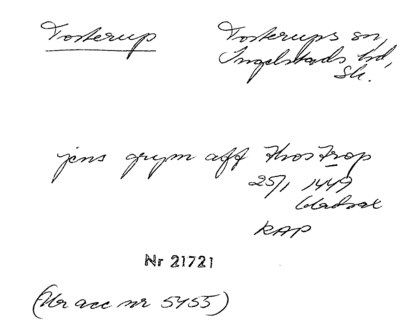 Tosterup
Tosterups sn,
Ingelstads hd,
Sk.
jens grym aff Thostrop
25/1 1449
RAP
Nr 21721
(Ur acc nr 5455)